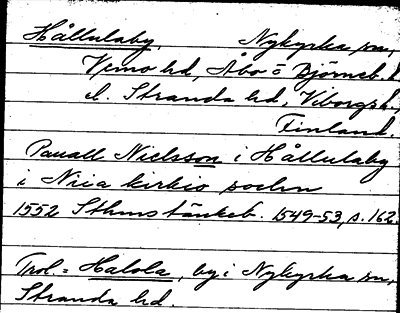 Hållulaby, Nykyrka sn,
Vemo hd, Åbo o Björneb. l
el. Stranda hd, Viborgs l,
Finland.
Pauall Nielsson i Hållulaby
i Niia kirkio sochn
1552 Sthms tänkeb. 1549-53, s. 162.
Trol. = Halola, by i Nykyrka sn,
Stranda hd.